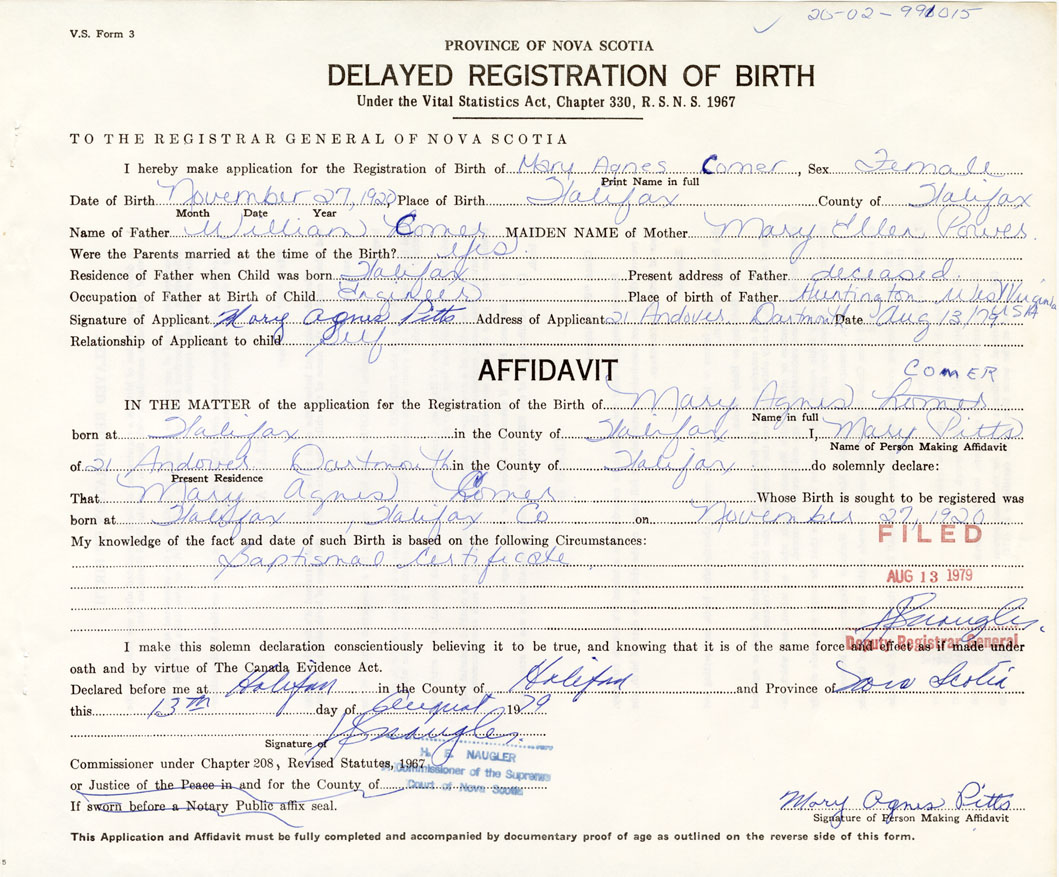 20-02-991015
V.S. Form 3
PROVINCE OF NOVA SCOTIA
DELAYED REGISTRATION OF BIRTH
Under the Vital Statistics Act, Chapter 330, R.S.N.S. 1967
TO THE REGISTRAR GENERAL OF NOVA SCOTIA
I hereby make application for the Registration of Birth of Mary Agnes Comer, Sex Female
Print Name in full
Date of Birth November 27, 1920, Place of Birth Halifax County of Halifax
Month Date Year
Name of Father William Comer MAIDEN NAME of Mother Mary Ellen Power
Were the Parents married at the time of the Birth? yes.
Residence of Father when Child was born Halifax Present address of Father deceased.
Occupation of Father at Birth of Child Engineer Place of birth of Father Huntington West Virginia USA
Signature of Applicant Mary Agnes Pitts Address of Applicant 21 Andover Dartmouth Date Aug 13/79
Relationship of Applicant to child Self
AFFIDAVIT
COMER
IN THE MATTER of the application for the Registration of the Birth of Mary Agnes Comer
Name in full
born at Halifax in the County of Halifax I, Mary Pitts
Name of Person Making Affidavit
of 21 Andover Dartmouth in the County of Halifax do solemnly declare:
Present Residence
That Mary Agnes Comer Whose Birth is sought to be registered was
born at Halifax, Halifax Co on November 27, 1920
FILED
My knowledge of the fact and date of such Birth is based on the following Circumstances:
Baptismal Certificate.
AUG 13 1979
Deputy Registrar General
I make this solemn declaration conscientiously believing it to be true, and knowing that it is of the same force and effect as if made under
oath and by virtue of The Canada Evidence Act.
Declared before me at Halifax in the County of Halifax and Province of Nova Scotia
this 13th day of August 1979
Signature of
H. E. NAUGLER
A Commissioner of the Supreme
Court of Nova Scotia
Commissioner under Chapter 208, Revised Statutes, 1967
or Justice of the Peace in and for the County of
If sworn before a Notary Public affix seal.
Mary Agnes Pitts
Signature of Person Making Affidavit
This Application and Affidavit must be fully completed and accompanied by documentary proof of age as outlined on the reverse side of this form.
5